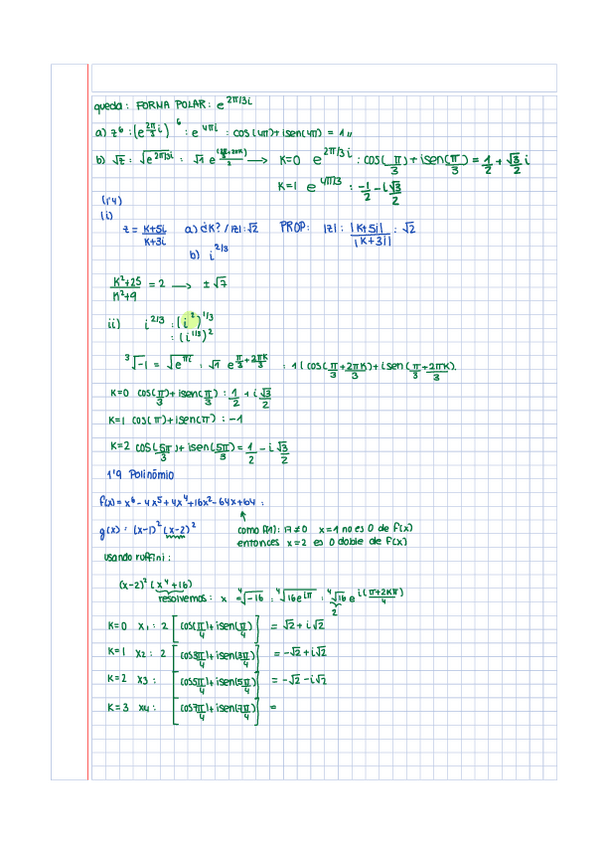 queda: FORMA POLAR: e^(2π/3i)
a) z⁶ : (e^(2π/3 i))⁶ : e^(4πi) : cos(4π)+isen(4π) = 1 //
b) √z : √e^(2π/3i) : √1 e → K=0 e^(2π/3 i) : cos(π/3)+isen(π/3) = 1/2 + √3/2 i
K=1 e^(4π/3) : -1/2 - i√3/2
(14)
(i)
z = K+5i/K+3i a) ¿K? / |z| : √2 PROP: |z| : |K+5i|/|K+3i| : √2
b) i^(2/3)
K²+25/K²+9 = 2 → ± √7
ii) i^(2/3) : (i²)^(1/3)
: (i^(1/3))²
³√-1 = √e^(πi) : √1 e^(π/3 + 2πK/3) : 1 (cos(π/3 + 2πK/3)+isen(π/3 + 2πK/3).
K=0 cos(π/3)+isen(π/3) : 1/2 + i√3/2
K=1 cos(π)+isen(π) : -1
K=2 cos(5π/3)+isen(5π/3) = 1/2 - i√3/2
1'9 Polinómio
f(x) = x⁶ - 4x⁵ + 4x⁴ + 16x² - 64x + 64 :
g(x) : (x-1)² (x-2)² como f(1) : 17 ≠ 0 x=1 no es 0 de f(x)
entonces x=2 es 0 doble de f(x)
usando ruffini :
(x-2)² (x⁴+16)
resolvemos : x = ⁴√-16 : ⁴√16e^(iπ) : ⁴√16 e^(i(π+2Kπ)/4)
2
K=0 x₁ : 2 [cos(π/4)+isen(π/4)] = √2 + i√2
K=1 x₂ : 2 [cos3π/4)+isen(3π/4)] = -√2+i√2
K=2 x₃ : [cos5π/4)+isen(5π/4)] = -√2-i√2
K=3 x₄ : [cos7π/4)+isen(7π/4)] =